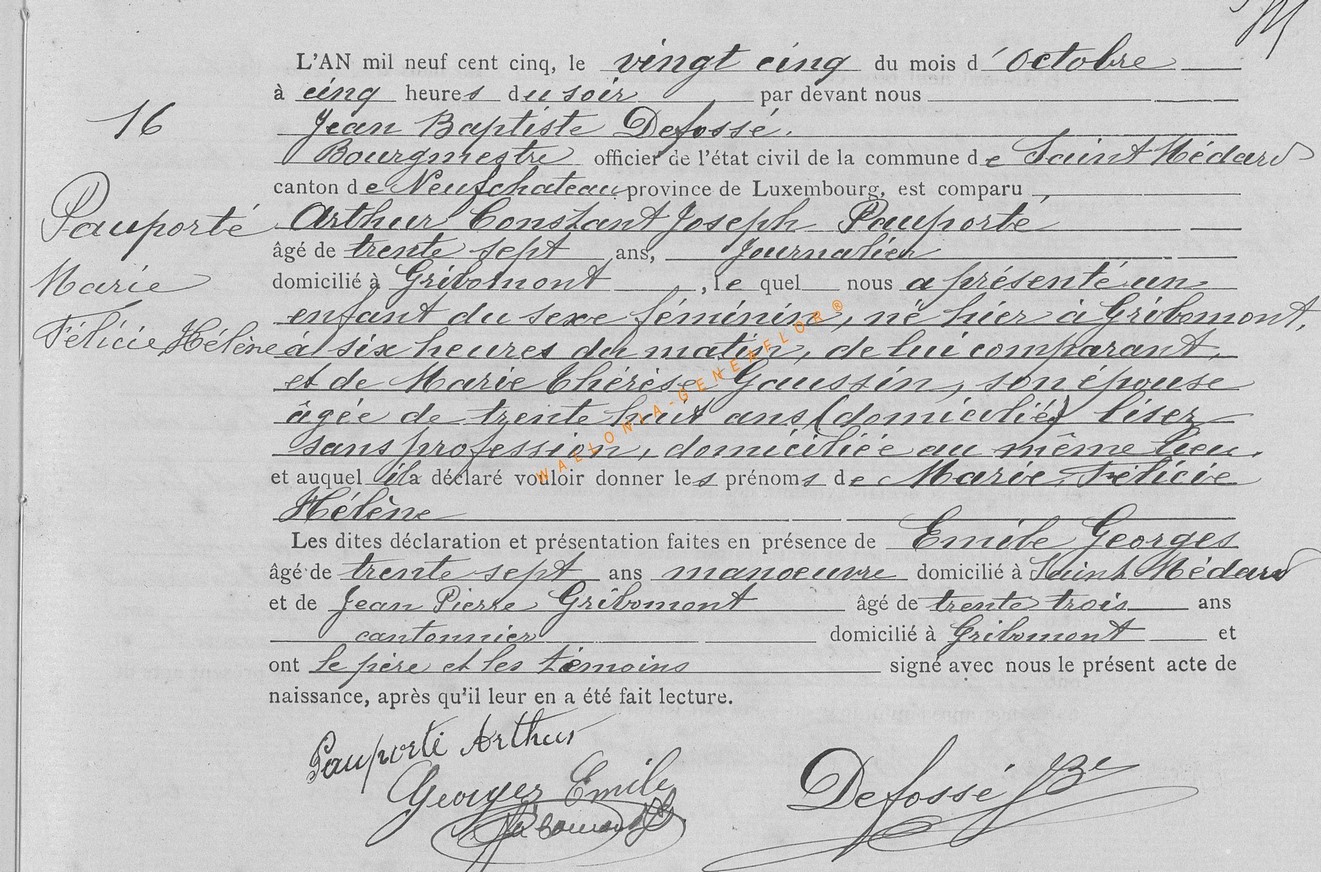 L'AN mil neuf cent cinq, le vingt cinq du mois d'Octobre
à cinq heures du soir par devant nous
Jean Baptiste Defossé.
Bourgmestre officier de l'état civil de la commune de Saint Médard
canton de Neufchateau province de Luxembourg, est comparu
Arthur Constant Joseph Pauporté
âgé de trente sept ans, Journalier
domicilié à Gribomont, le quel nous a présenté un
enfant du sexe féminin, né hier à Gribomont,
à six heures du matin, de lui comparant,
et de Marie Thérèse Gaussin, son épouse
âgée de trente huit ans (domicilié) lisez
sans profession, domiciliée au même lieu.
et auquel il a déclaré vouloir donner les prénoms de Marie Félicie
Hélène
Les dites déclaration et présentation faites en présence de Emile Georges
âgé de trente sept ans manoeuvre domicilié à Saint Médard
et de Jean Pierre Gribomont âgé de trente trois ans
cantonnier domicilié à Gribomont et
ont le père et les témoins signé avec nous le présent acte de
naissance, après qu'il leur en a été fait lecture.
16
Pauporté
Marie
Félicie Hélène
Pauporté Arthur
Georges Emile
Gribomont
Defossé JBe
WALLONIA-GENEAFLOR®